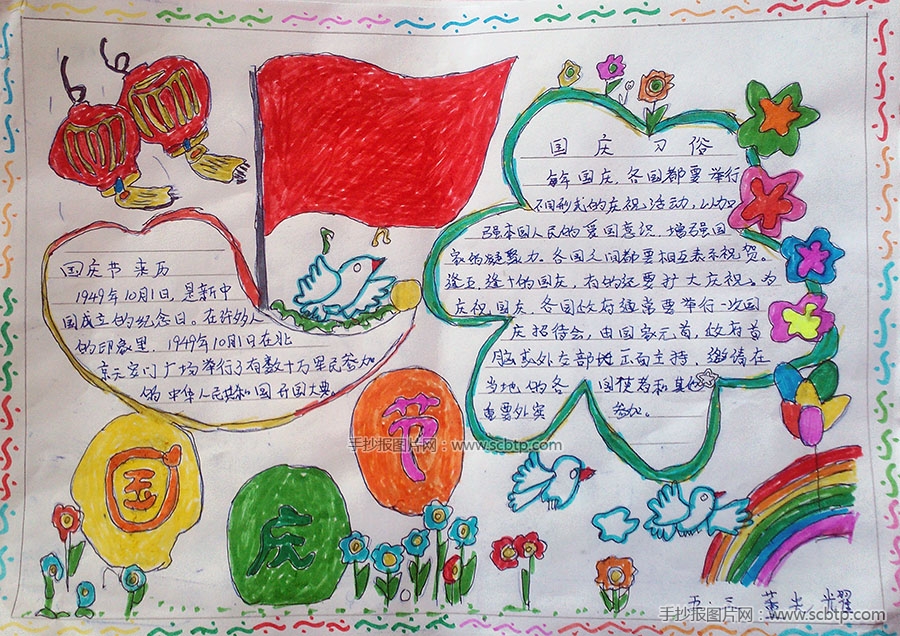 国庆节来历
1949年10月1日,是新中
国成立的纪念日。在许多人
的印象里,1949年10月1日在北
京天安门广场举行了有数十万军民参加
的中华人民共和国开国大典。
国庆习俗
每年国庆,各国都要举行
不同形式的庆祝活动,以加
强本国人民的爱国意识,增强国
家的凝聚力。各国人间都要相互表示祝贺。
逢五、逢十的国庆,有的还要扩大庆祝。为
庆祝国庆,各国政府通常要举行一次国
庆招待会,由国家元首,政府首
脑或外交部长正面主持,邀请在
当地的各国使者和其他
重要外宾参加。
国
庆
节
手抄报图片网:www.scbtp.com
五、三
手抄报图片网:www.scbtp.com